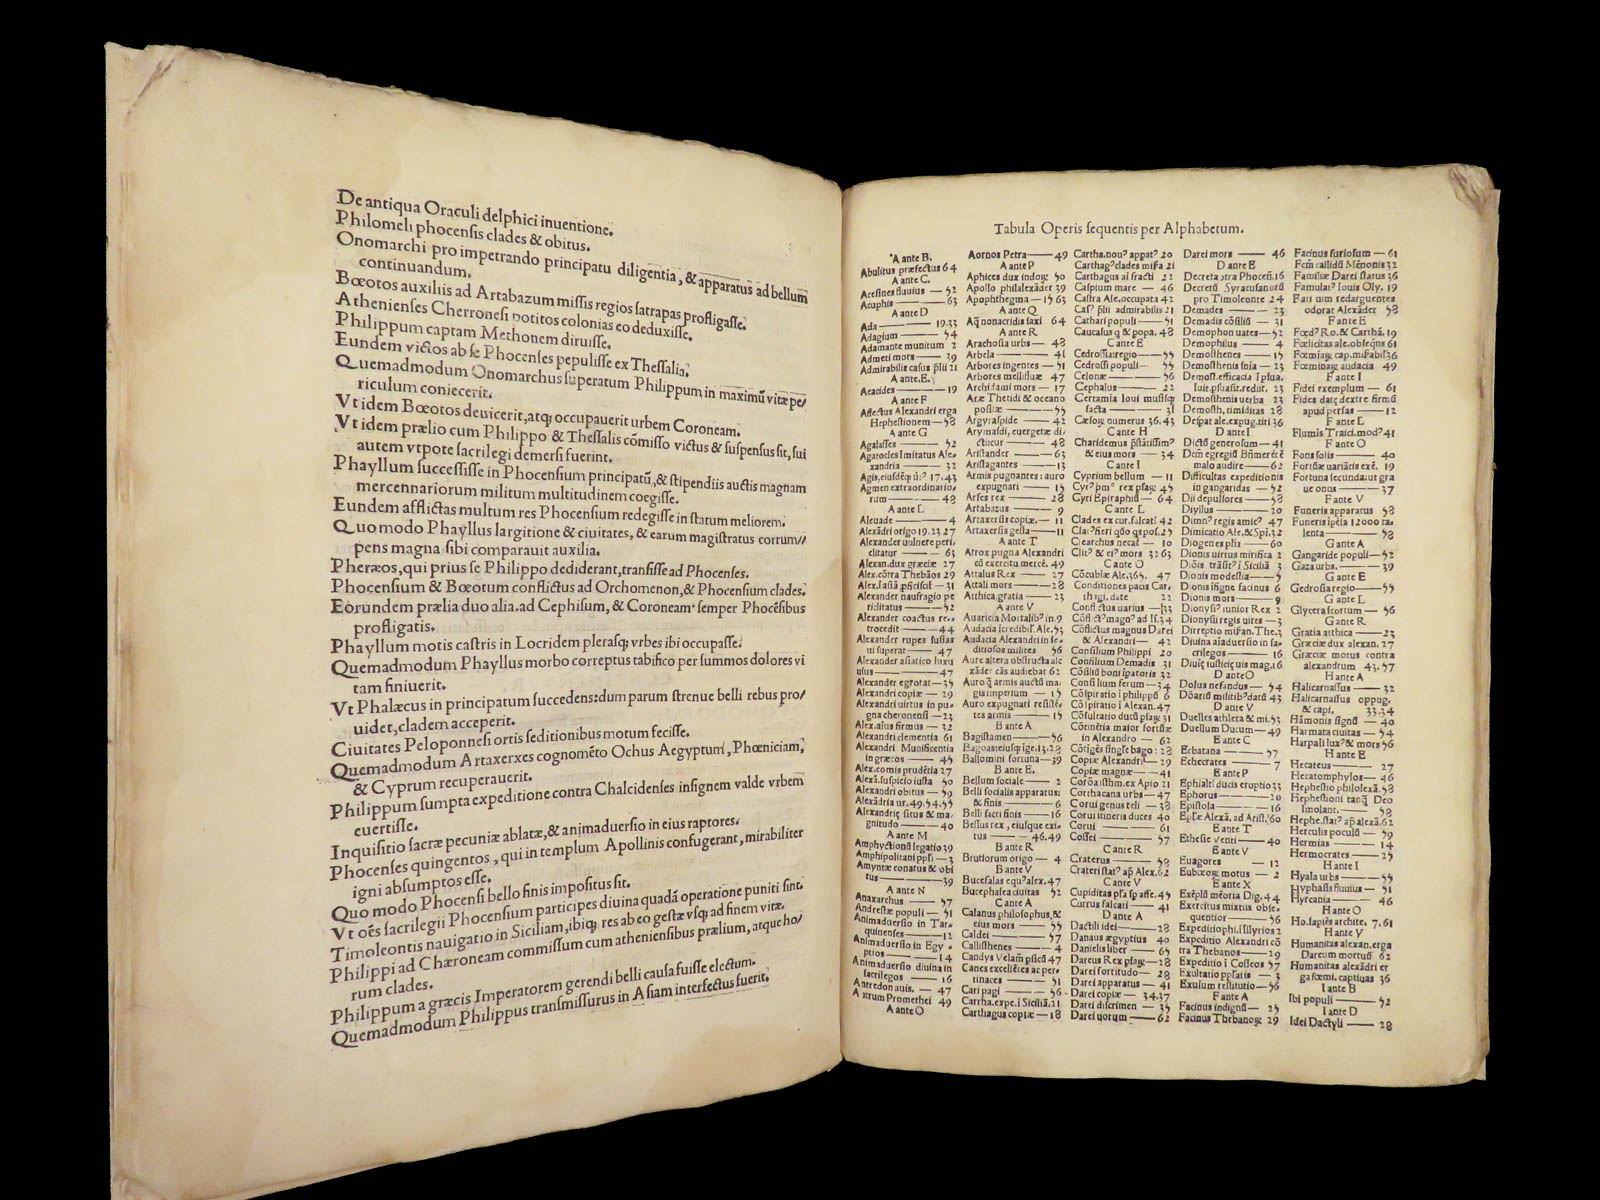 De antiqua Oraculi delphici inuentione.
Philomeli phocenſis clades & obitus.
Onomarchi pro impetrando principatu diligentia, & apparatus ad bellum
continuandum.
Bœotos auxiliis ad Artabazum miſſis regios ſatrapas profligaſſe.
Athenienſes Cherroneſi potitos colonias eo deduxiſſe.
Philippum captam Methonem diruiſſe.
Eundem victos ab ſe Phocenſes pepuliſſe ex Theſſalia.
Quemadmodum Onomarchus ſuperatum Philippum in maximū vitæ pe/
riculum coniecerit.
Vt idem Bœotos deuicerit, atq; occupauerit urbem Coroneam.
Vt idem prælio cum Philippo & Theſſalis cōmiſſo victus & ſuſpenſus ſit, ſui
autem vtpote ſacrilegi demerſi fuerint.
Phayllum ſucceſſiſſe in Phocenſium principatū, & ſtipendiis auctis magnam
mercennariorum militum multitudinem coegiſſe.
Eundem afflictas multum res Phocenſium redegiſſe in ſtatum meliorem.
Quo modo Phayllus largitione & ciuitates, & earum magiſtratus corrum//
pens magna ſibi comparauit auxilia.
Pheræos, qui prius ſe Philippo dediderant, tranſiſſe ad Phocenſes.
Phocenſium & Bœotum conflictus ad Orchomenon, & Phocenſium clades.
Eorundem prælia duo alia. ad Cephiſum, & Coroneam ſemper Phocēſibus
profligatis.
Phayllum motis caſtris in Locridem pleraſq; vrbes ibi occupaſſe.
Quemadmodum Phayllus morbo correptus tabifico per ſummos dolores vi
tam finiuerit.
Vt Phalæcus in principatum ſuccedens: dum parum ſtrenue belli rebus pro/
uidet, cladem acceperit.
Ciuitates Peloponneſi ortis ſeditionibus motum feciſſe.
Quemadmodum Artaxerxes cognomēto Ochus Aegyptum, Phœniciam,
& Cyprum recuperauerit.
Philippum ſumpta expeditione contra Chalcidenſes inſignem valde vrbem
euertiſſe.
Inquiſitio ſacræ pecuniæ ablatæ, & animaduerſio in eius raptores.
Phocenſes quingentos, qui in templum Apollinis confugerant, mirabiliter
igni abſumptos eſſe.
Quo modo Phocenſi bello finis impoſitus ſit.
Vt oēs ſacrilegii Phocenſium participes diuina quadā operatione puniti ſint.
Timoleontis nauigatio in Siciliam, ibiq; res ab eo geſtæ vſq; ad finem vitæ.
Philippi ad Chæroneam commiſſum cum athenienſibus prælium, atque ho/
rum clades.
Philippum a græcis Imperatorem gerendi belli cauſa fuiſſe electum.
Quemadmodum Philippus tranſmiſſurus in Aſiam interfectus fuerit.
Tabula Operis ſequentis per Alphabetum.
A ante B.
Abulitus præfectus 64
A ante C.
Aceſines fluuius — 52
Acuphis — 63
A ante D
Ada — 19.33
Adagium — 54
Adamante munitum 2
Admeti mors — 39
Admirabilis caſus plii 21
A ante E.
Aeacides — 19
A ante F
Affectus Alexandri erga
Hepheſtionem — 58
A ante G
Agalaſſes — 52
Agatocles Imitatus Ale-
xandria — 32
Agmen extraordinario/
rum — 48
A ante L
Aleuade — 4
Alexādri origo 19.23 27
Alexander uulnere peri/
clitatur — 63
Alexan. dux græciæ 27
Alex. cōtra Thebāos 29
Alexander naufragio pe
riclitatus — 52
Alexander coactus re-
trocedit — 44
Alexander rupes fuſias
ui ſuperat — 47
Alexander aſiatico luxu
uſus — 47
Alexander egrotat — 35
Alexandri copiæ — 29
Alexandri uirtus in pu-
gna cheronenſi — 23
Alex. aſus firmus — 32
Alexandri clementia 61
Alexandri Munificentia
in græcos — 45
Alex. comis prudētia 27
Alexā. ſuſpicio iuſta 50
Alexandri obitus — 59
Alexādria ur. 49.54.55
Alexandrię ſitus & ma-
gnitudo — 40
A ante M
Amphyctionū legatio 39
Amphipolitani ppľi — 3
Amyntæ conatus & obi
tus — 39
A ante N
Anaxarchus — 57
Andreſtæ populi — 51
Animaduerſio in Tar-
quinenſes — 12
Animaduerſio in Egy-
ptios — 14
Animaduerſio diuina in
ſacrilegos — 16
Antredon auis. — 47
Antrum Promethei 49
A ante O
Aornos Petra — 49
A ante P
Aphices dux indoꝝ 50
Apollo philalexāder 39
Apophthegma — 15 63
A ante Q
Aq̄ nonacridis ſaxi 64
A ante R
Arachoſia urbs — 48
Arbela — 41
Arbores ingentes — 51
Arbores mellifluæ 47
Archidami mors — 17
Aræ Thetidi & oceano
poſitæ — 55
Argyraſpide — 42
Arymaſdi, euergetæ di/
cticur — 48
Ariſtander — 63
Ariſtagantes — 13
Armis pugnantes: auro
expugnari — 15
Arſes rex — 28
Artabazus — 9
Artaxerſis copiæ. — 11
Artaxerſis geſta — 11
A ante T
Atrox pugna Alexandri
cū exercitu mercē. 49
Attalus Rex — 27
Attali mors — 28
Atthica. gratia — 23
A ante V
Auaricia Mortalib' in 9
Audacia īcredibiľ Ale. 53
Audacia Alexandri in ſe-
ditioſos milites 56
Aure altera obſtructa ale
xāder cās audiebat 62
Auroq; armis auctū ma
gis imperium — 15
Auro expugnari reſiſtē/
tes armis — 15
B ante A
Bagiſtamen — 56
Ballomini fortuna — 39
B ante E.
Bellum ſociale — 2
Belli ſocialis apparatus:
& finis — 6
Belli ſacri finis — 16
Beſſus rex, eiuſque exi-
tus — 46.49
B ante R
Brutiorum origo — 4
B ante V
Bucefalas equ' alex. 47
Bucephalea ciuitas 52
C ante A
Calanus philoſophus, &
eius mors — 55
Caldei — 57
Calliſthenes — 4
Candys Velam pſicū 47
Canes excellētes ac per-
tinaces — 51
Cari pagi — 56
Cartha. expe. ī Siciliā. 21
Carthagus copiæ — 18
Cartha. nou' appat' 20
Carthag' clades miꝶa 21
Carthagus ai fracti 22
Caſpium mare — 46
Caſtra Ale. occupata 42
Caſ' plii admirabilis 21
Cathari populi — 51
Caucaſus q & popa. 48
C ante E
Cedroſſia: regio — 55
Cedroſſi populi — 55
Celonæ — 56
Cephalus — 22
Certamia Ioui muſiſq;
facta — 31
Cæſoꝝ numerus 36.43
C ante H
Charidemus pſtātiſſim'
& eius mors — 34
C ante I
Cyprium bellum — 11
Cyr' pm' rex pſaꝝ 45
Cyri Epiraphiū — 64
C ante L
Clades ex cur. falcati 42
Clearchus necat — 10
Clit' & ei' mors 32 63
C ante O
Cōcubiæ Ale. 365. 47
Conditiones pacis Car.
thagi. datæ 22
Conflictus uarius — 33
Cōflict' magn' ad Iſ. 34
Conflictus magnus Darei
& Alexandri — 42
Conſilium Philippi 20
Conſilium Demadis 31
Cōſiliū boni īpatoris 32
Conſilium ferum — 34
Cōſpiratio ī philippū 6
Cōſpiratio ī Alexan. 47
Cōſultatio ducū pſaꝝ 31
Cōtinētia maior fortūæ
in Alexandro — 62
Copiæ Alexandri — 29
Copiæ magnæ — 41
Corōa iſthm. ex Apio 21
Corthacana urbs — 47
Corui genus teli — 38
Corui itineris duces 40
Corui — 61
Coſſei — 57
C ante R
Craterus — 58
Crateri ſtat' ap̄ Alex. 62
C ante V
Cupiditas pſa ſp aſſe. 45
Currus falcati — 41
D ante A
Dactili idei — 28
Danaus ægyptius 40
Danielis liber — 65
Darcus Rex pſaꝝ — 28
Darei fortitudo — 28
Darei apparatus — 41
Darei copiæ — 34.37
Darei diſcrimen — 35
Darei uotum — 62
Darei mors — 46
D ante E
Decreta atra Phocen̄. 16
Decretū Syracuſanorū
pro Timoleonte 24
Demades — 23
Demadis cōſiliū — 31
Demophon uates — 52
Demophilus — 4
Demoſthenes — 15
Demoſthenis ſnīa — 23
Demoſt. efficacia ī pſua.
Demoſthenis uerba 23
Demoſth. timiditas 28
Deſpat ale. expug. tiri 36
D ante I
Dictū generoſum — 41
Dcm̄ egregiū Bn̄merētē
malo audire — 62
Difficultas expeditionis
in gangaridas — 52
Dii depulſores — 58
Diyllus — 20
Dimn' regis amic' 47
Dimicatio Ale. & Spi. 32
Diogenes phs — 60
Dionis uirtus mirifica 2
Diōis trāſit' ī Siciliā 3
Dionis modeſtia — 5
Dionis īſigne facinus 6
Dionis mors — 9
Dionyſ' iunior Rex 2
Dionyſii regis uires — 3
Direptio miꝶan. The. 3
Diuina aīaduerſio in ſa-
crilegos — 16
Diuię iuſticię uis mag. 16
D ante O
Dolus nefandus — 54
Dōariū militib' datū 43
D ante V
Duelles athleta & mi. 53
Duellum Ducum — 49
E ante C
Ecbatana — 57
Echecrates — 7
E ante P
Ephialti ducis eruptio 33
Ephorus — 20
Epiſtola — 16
Epłæ Alexā. ad Ariſt. 60
E ante T
Etheſie venti — 40
E ante V
Euagores — 12
Eubœoꝝ motus — 2
E ante X
Exēpłū mēoria Dig. 44
Exercitus mixtus obſe-
quentior — 56
Expeditio phi. ī Illyrios 2
Expeditio Alexandri cō
tra Thebanos — 29
Expeditio ī Coſſeos 57
Exultatio ppľatis — 3
Exulum reſtitutio — 56
F ante A
Facinus indignū — 25
Facinus Thebanoꝝ 29
Facinus furioſum — 61
Fcm̄ callidū Mēnonis 32
Familiæ Darei ſtatus 36
Famulat' Iouis Oly. 19
odorat Alexāder 58
F ante E
Fœd' Ro. & Carthā. 19
Fœlicitas ale. obſeq̄ns 61
Fœmiaꝝ cap. miꝶabił 36
Fœminaꝝ audacia 49
F ante I
Fidei exemplum — 61
Fides datę dextre firmū
apud perſas — 12
F ante L
Flumīs Traici. mod' 41
F ante O
Fons ſolis — 40
Fortūæ uariātis exē. 19
Fortuna ſecunda: ut gra
ue onus — 37
F ante V
Funeris apparatus 58
Funeris īpēſa 12000 ta-
lenta — 58
G ante A
Gangaride populi — 52
Gaza urbs. — 39
G ante E
Gedroſia regio — 55
G ante L
Glycera ſcortum — 56
G ante R
Gratia atthica — 23
Græciæ dux alexan. 27
Græciæ motus contra
alexandrum 43.57
H ante A
Halicarnaſſus — 32
Halicarnaſſus oppug.
& capī. 33.34
Hāmonis ſignū — 40
Harmata ciuitas — 54
Harpali lux' & mors 56
H ante E
Hecateus — 27
Hecatomphylos — 46
Hepheſtio philolexā. 58
Hepheſtioni tanq̄ Deo
īmolant. — 58
Hephe. ſtat' ap̄ alexā. 62
Herculis poculū — 59
Hermias — 14
Hermocrates — 25
H ante I
Hyala urbs — 55
Hyphaſis fluuius — 51
Hyrcania — 46
H ante O
Ho. ſapiēs archite. 7.61
H ante V
Humanitas alexan. erga
Dareum mortuū 62
Humanitas alexādri er
ga fœmi. captiuas 36
I ante B
Ibi populi — 52
I ante D
Idei Dactyli — 28